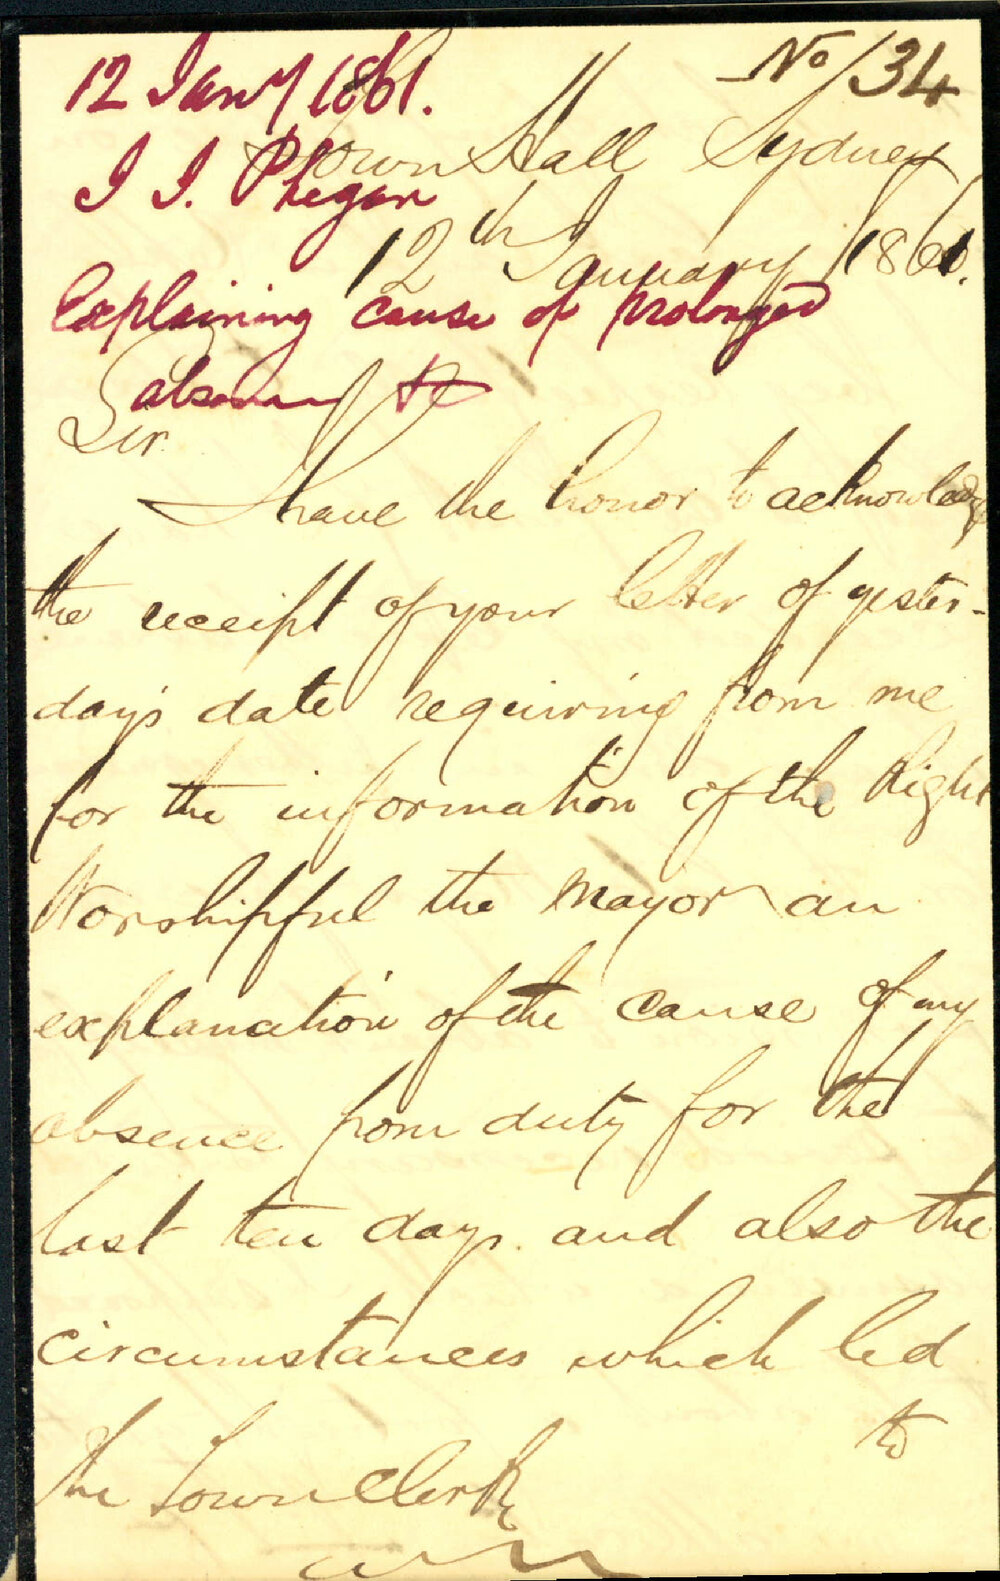 No/34
12 Jany 1861.
Town Hall Sydney
J J. Phegan
12th January 1861.
Explaining cause of prolonged
absence &c
Sir
I have the honor to acknowledge
the receipt of your letter of yester-
day's date requiring from me
for the information of the Right
Worshipful the Mayor an
explanation of the cause of my
absence from duty for the
last ten days and also the
circumstances which led
to
The Town Clerk